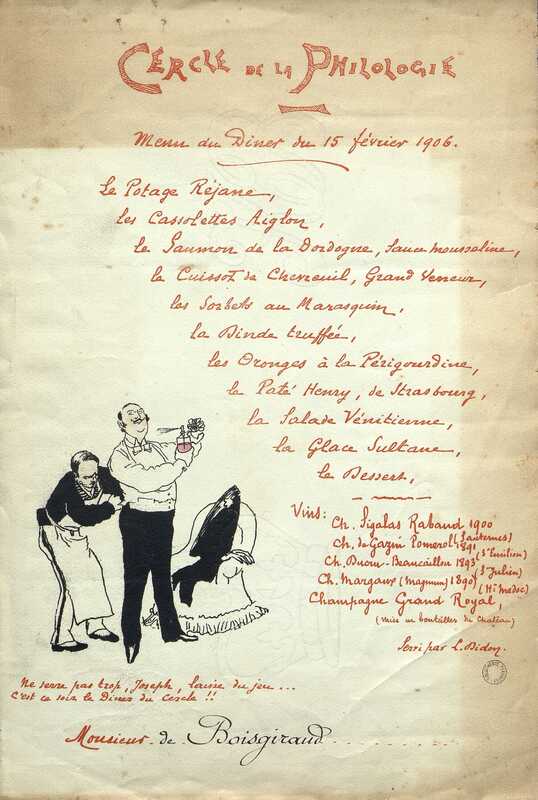 CERCLE DE LA PHILOLOGIE
Menu du Diner du 15 février 1906.
Le Potage Réjane,
les Cassolettes Aiglon,
le Saumon de la Dordogne, Sauce mousseline,
le Cuissot de Chevreuil, Grand Veneur,
les Sorbets au Marasquin,
la Dinde truffée,
les Oronges à la Périgourdine,
le Paté Henry, de Strasbourg,
la Salade Vénitienne,
la Glace Sultane,
le Dessert,
Vins:
Ch. Sigalas Rabaud 1900 (Sauternes)
Ch. de Gazin Pomerol 1891 (St Emilion)
Ch. Ducru-Beaucaillou 1893 (St Julien)
Ch. Margaux (Magnum) 1890 (Ht Médoc)
Champagne Grand Royal,
(mise en bouteilles du Chateau)
Servi par L. Bidon.
Ne serre pas trop, Joseph, laisse du jeu...
C'est ce soir le Diner du Cercle !!
Monsieur de Boisgiraud